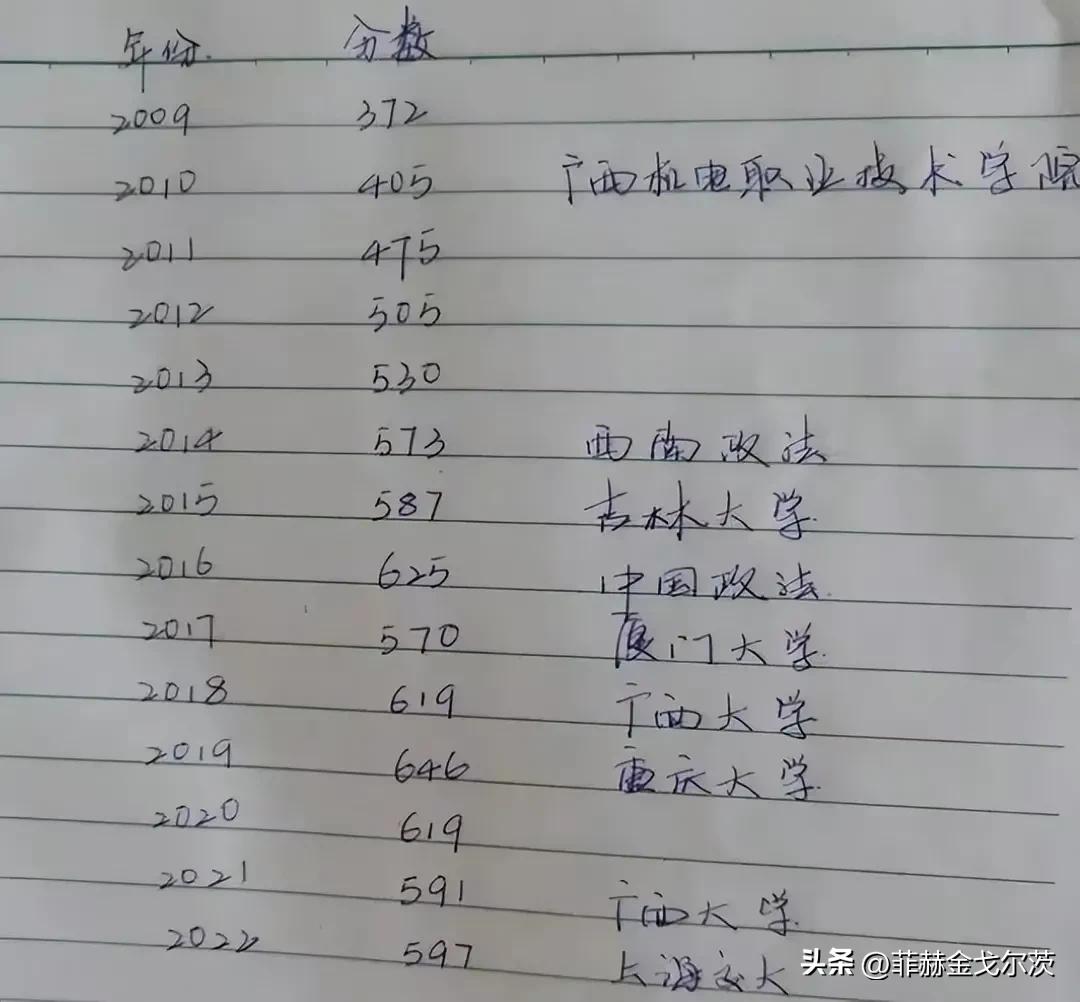 年份 分数
2009 372
2010 405 广西机电职业技术学院
2011 475
2012 505
2013 530
2014 573 西南政法
2015 587 吉林大学
2016 625 中国政法
2017 570 厦门大学
2018 619 广西大学
2019 646 重庆大学
2020 619
2021 591 广西大学
2022 597 上海交大
头条 @菲赫金戈尔茨